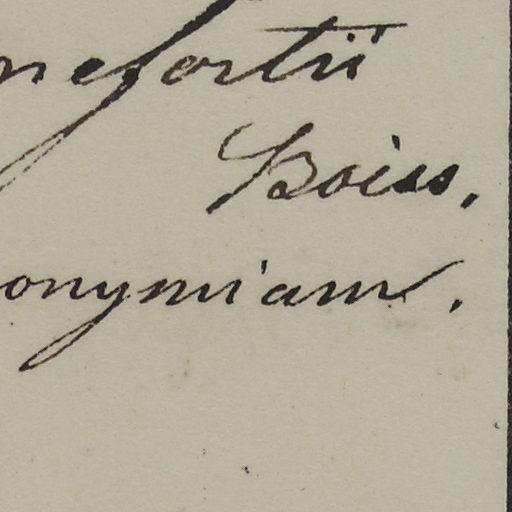 nefortii
Boiss.
onymiam.